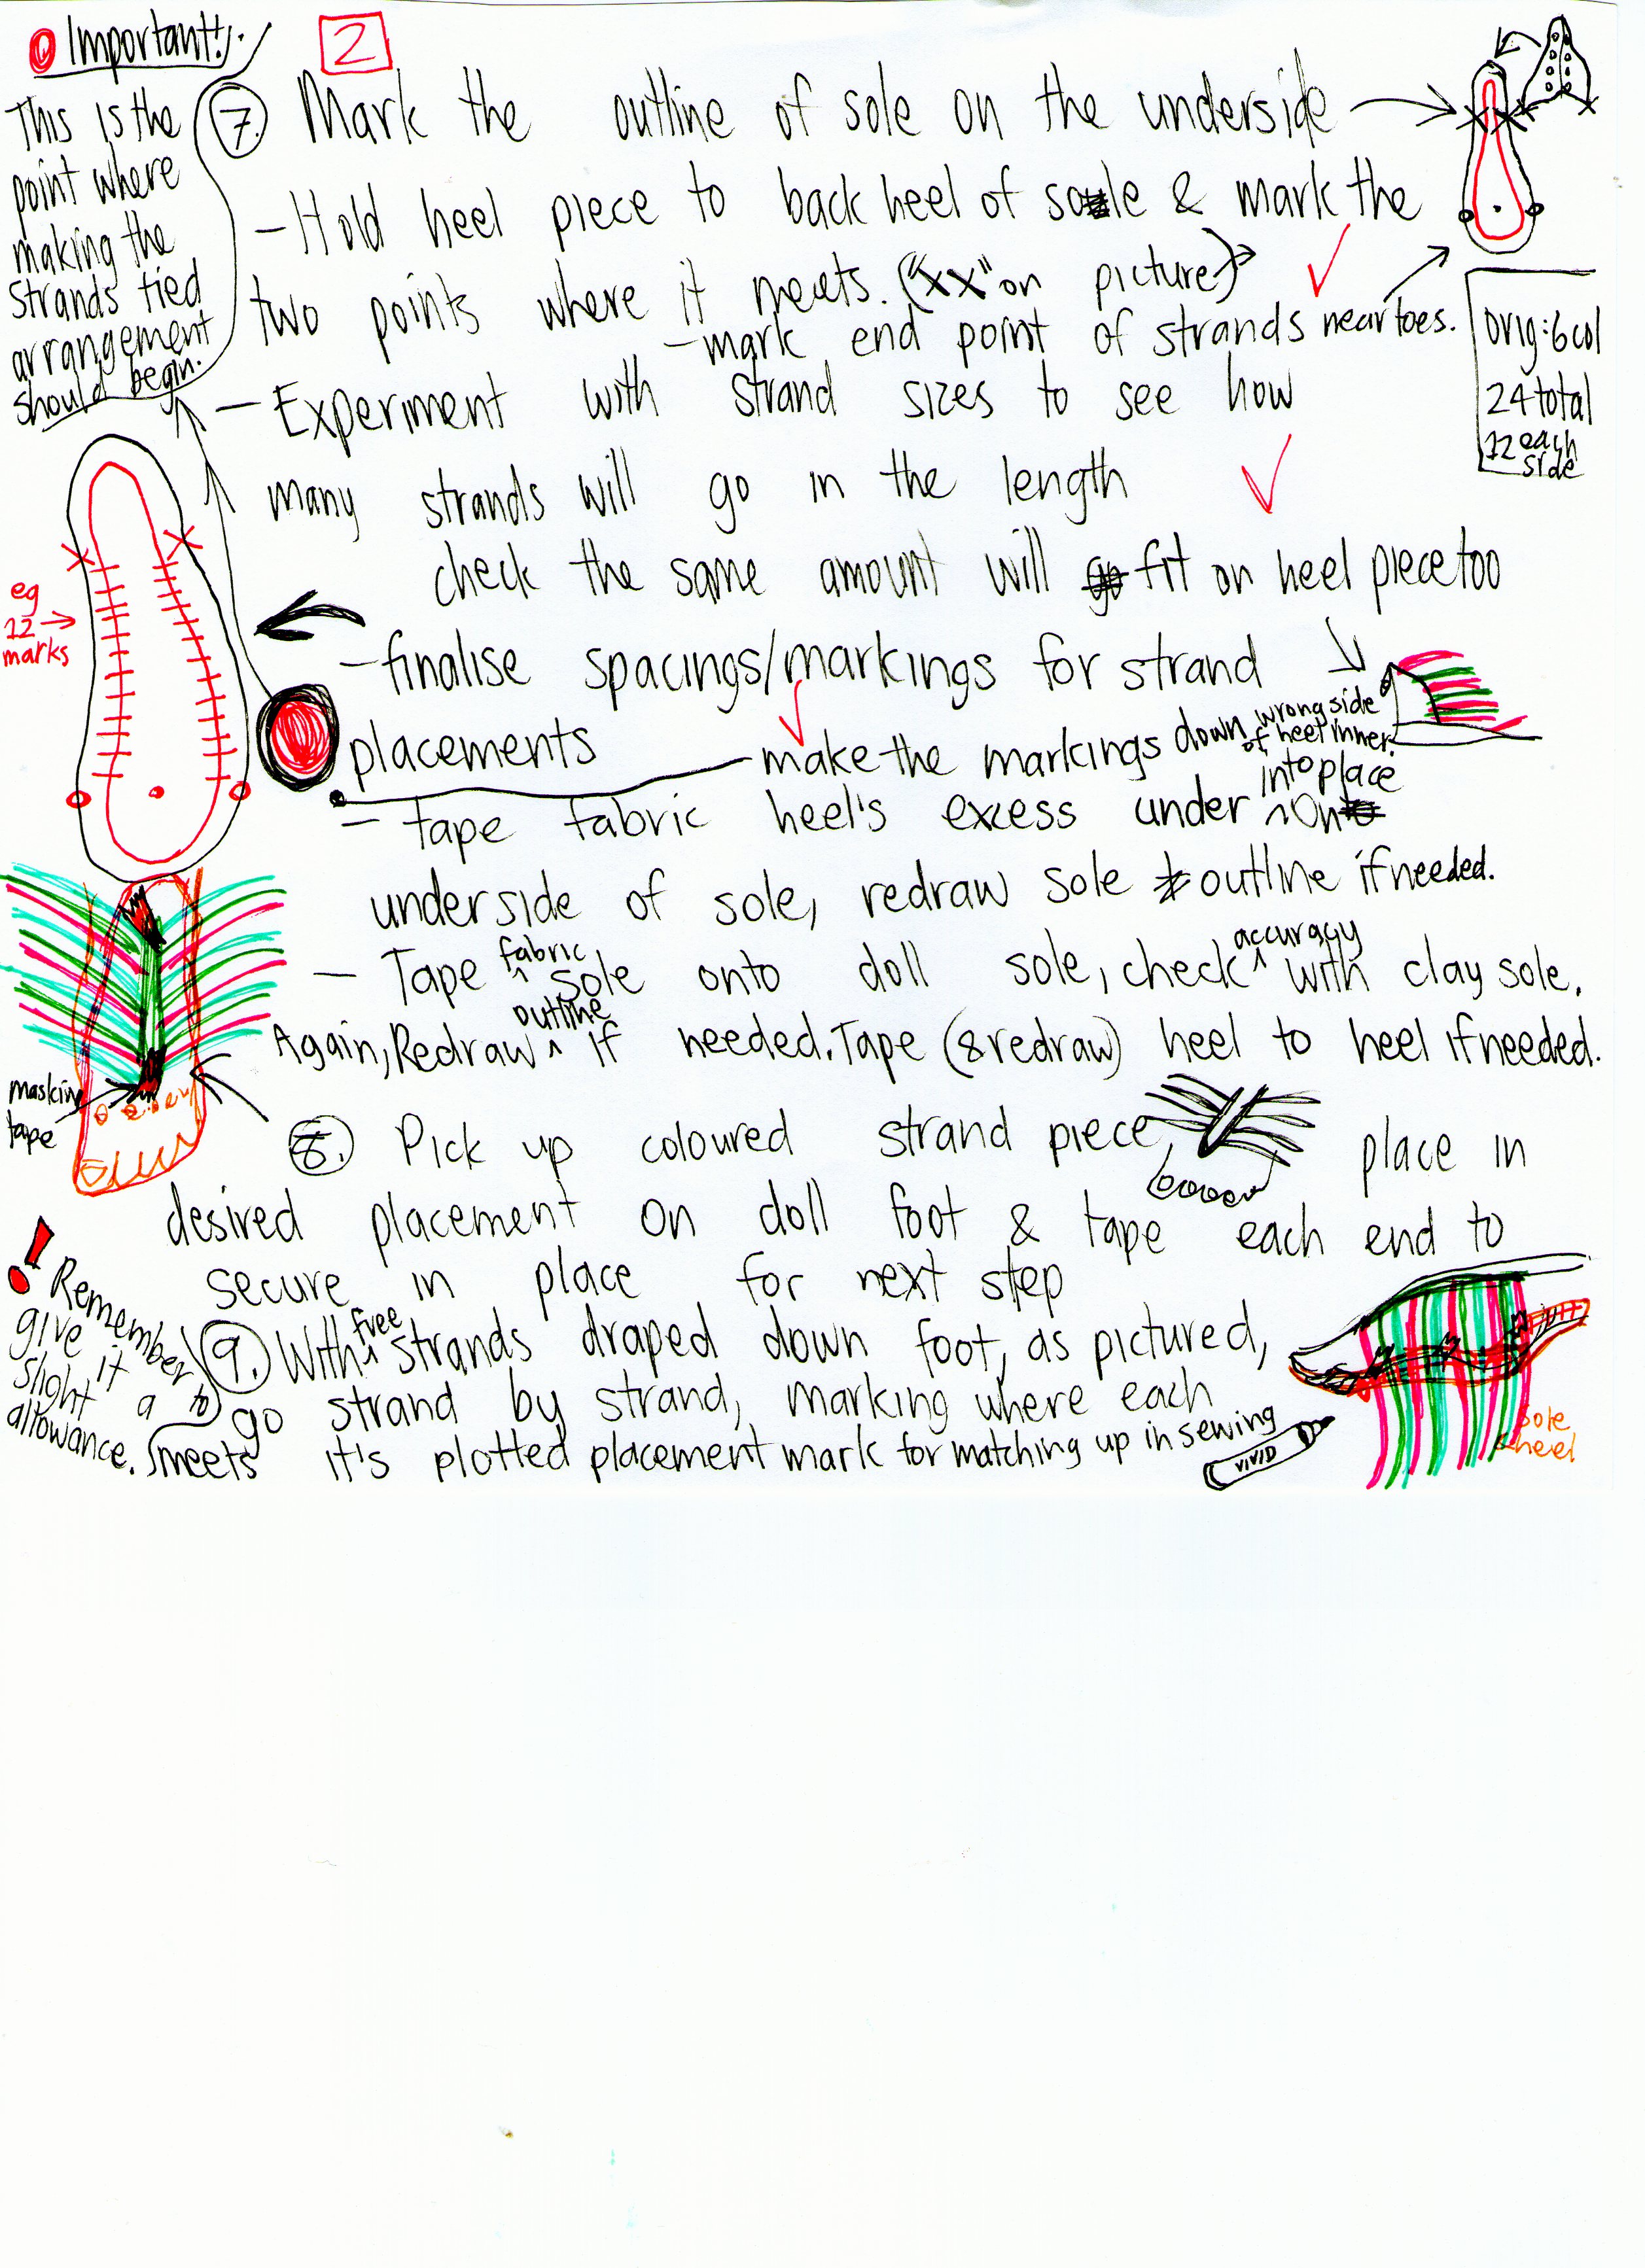 Important!!
2
This is the
point where
making the
strands tied
arrangement
should begin.
7. Mark the outline of sole on the underside
- Hold heel piece to back heel of sole & mark the
two points where it meets. ("xx" on picture)
- mark end point of strands near toes.
orig: 6 col
24 total
12 each
side
- Experiment with strand sizes to see how
many strands will go in the length
check the same amount will fit on heel piece too
eg
12
marks
- finalise spacings/markings for strand
placements
- make the markings down wrong side
of heel inner.
- Tape fabric heel's excess under into place on
underside of sole, redraw sole outline if needed.
- Tape fabric sole onto doll sole, check accuracy with clay sole.
Again, Redraw outline if needed. Tape (& redraw) heel to heel if needed.
masking
tape
8. Pick up coloured strand piece, place in
desired placement on doll foot & tape each end to
secure in place for next step
! Remember to
give it
slight a
allowance.
9. With free strands draped down foot, as pictured,
go strand by strand, marking where each
meets it's plotted placement mark for matching up in sewing
VIVID
sole
& heel